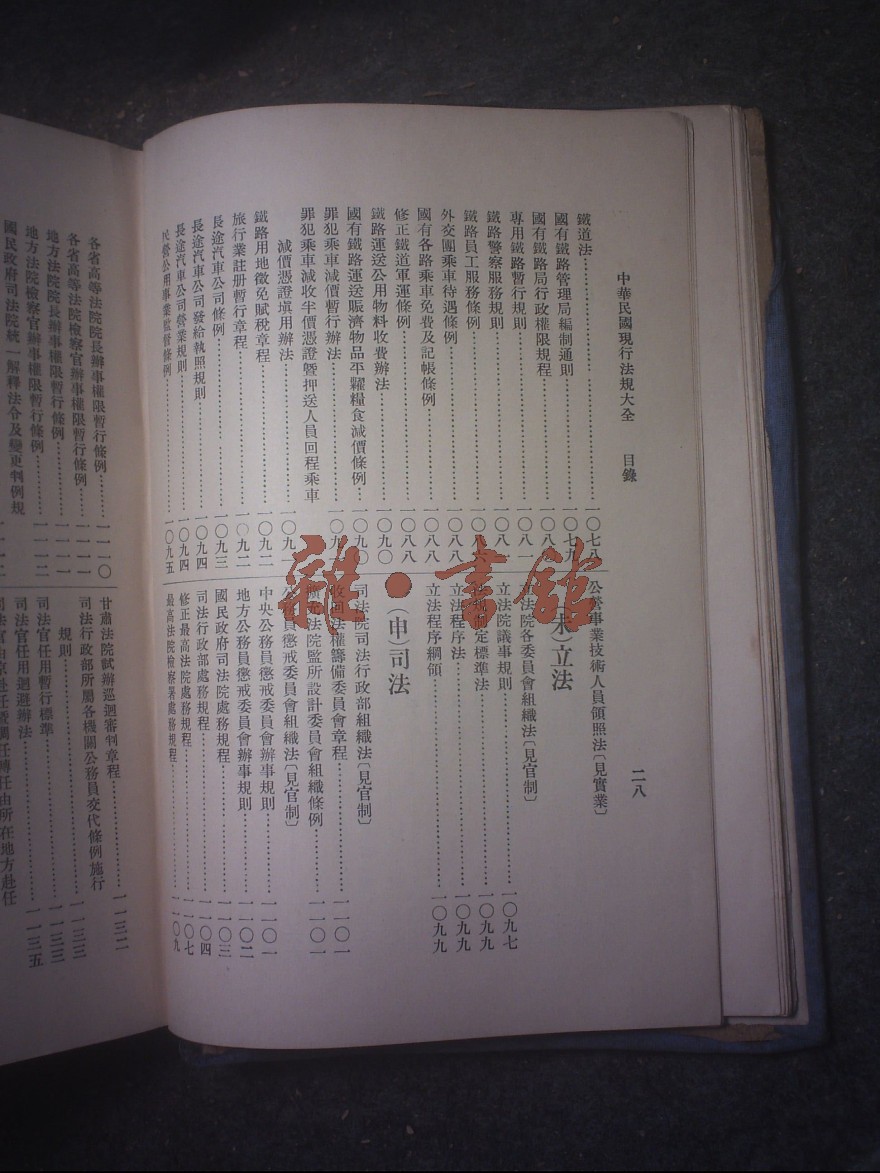 中華民國現行法規大全 目錄 二八
鐵道法 一〇七八
國有鐵路管理局編制通則 一〇七九
國有鐵路局行政權限規程 一〇八
專用鐵路暫行規則 一〇八一
鐵路警察服務規則 一〇八
鐵路員工服務條例 一〇八六
外交團乘車待遇條例 一〇八八
國有各路乘車免費及記帳條例 一〇八八
修正鐵道軍運條例 一〇八八
鐵路運送公用物料收費辦法 一〇九〇
國有鐵路運送賑濟物品平糶糧食減價條例 一〇九〇
罪犯乘車減價暫行辦法 一〇九
罪犯乘車減收半價憑證暨押送人員回程乘車
減價憑證填用辦法 一〇九
鐵路用地徵免賦稅章程 一〇九二
旅行業註册暫行章程 一〇九二
長途汽車公司條例 一〇九三
長途汽車公司發給執照規則 一〇九四
長途汽車公司營業規則 一〇九四
民營公用事業監督條例 一〇九五
公營事業技術人員領照法〔見實業〕
(未)立法
立法院各委員會組織法〔見官制〕
立法院議事規則 一〇九七
法規制定標準法 一〇九九
立法程序法 一〇九九
立法程序綱領 一〇九九
(申)司法
司法院司法行政部組織法〔見官制〕
收回法權籌備委員會章程 一一〇一
擴充法院監所設計委員會組織條例 一一〇一
公務員懲戒委員會組織法〔見官制〕
中央公務員懲戒委員會辦事規則 一一〇一
地方公務員懲戒委員會辦事規則 一一〇二
國民政府司法院處務規程 一一〇三
司法行政部處務規程 一一〇四
修正最高法院處務規程 一一〇七
最高法院檢察署處務規程 一一〇九
各省高等法院院長辦事權限暫行條例 一一一〇
各省高等法院檢察官辦事權限暫行條例 一一一一
地方法院院長辦事權限暫行條例 一一一一
地方法院檢察官辦事權限暫行條例 一一一二
國民政府司法院統一解釋法令及變更判例規
甘肅法院試辦巡迴審判章程 一一三二
司法行政部所屬各機關公務員交代條例施行
規則 一一三三
司法官任用暫行標準 一一三三
司法官任用迴避辦法 一一三五
雜·書館